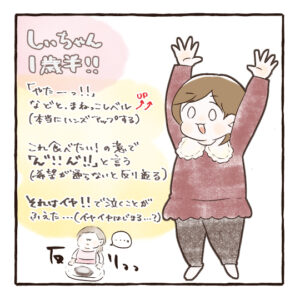 しぃちゃん
1歳手!!
「やたーっ!!」
などと、まねっこレベル UP
(本当にハンズアップする)
これ食べたい!の意で
「ん"!!ん"!!」と言う
(希望が通らないと反り返る)
それはイヤ!!で泣くことが
ふえた…(イヤイヤはじまる…?)
反りっっ